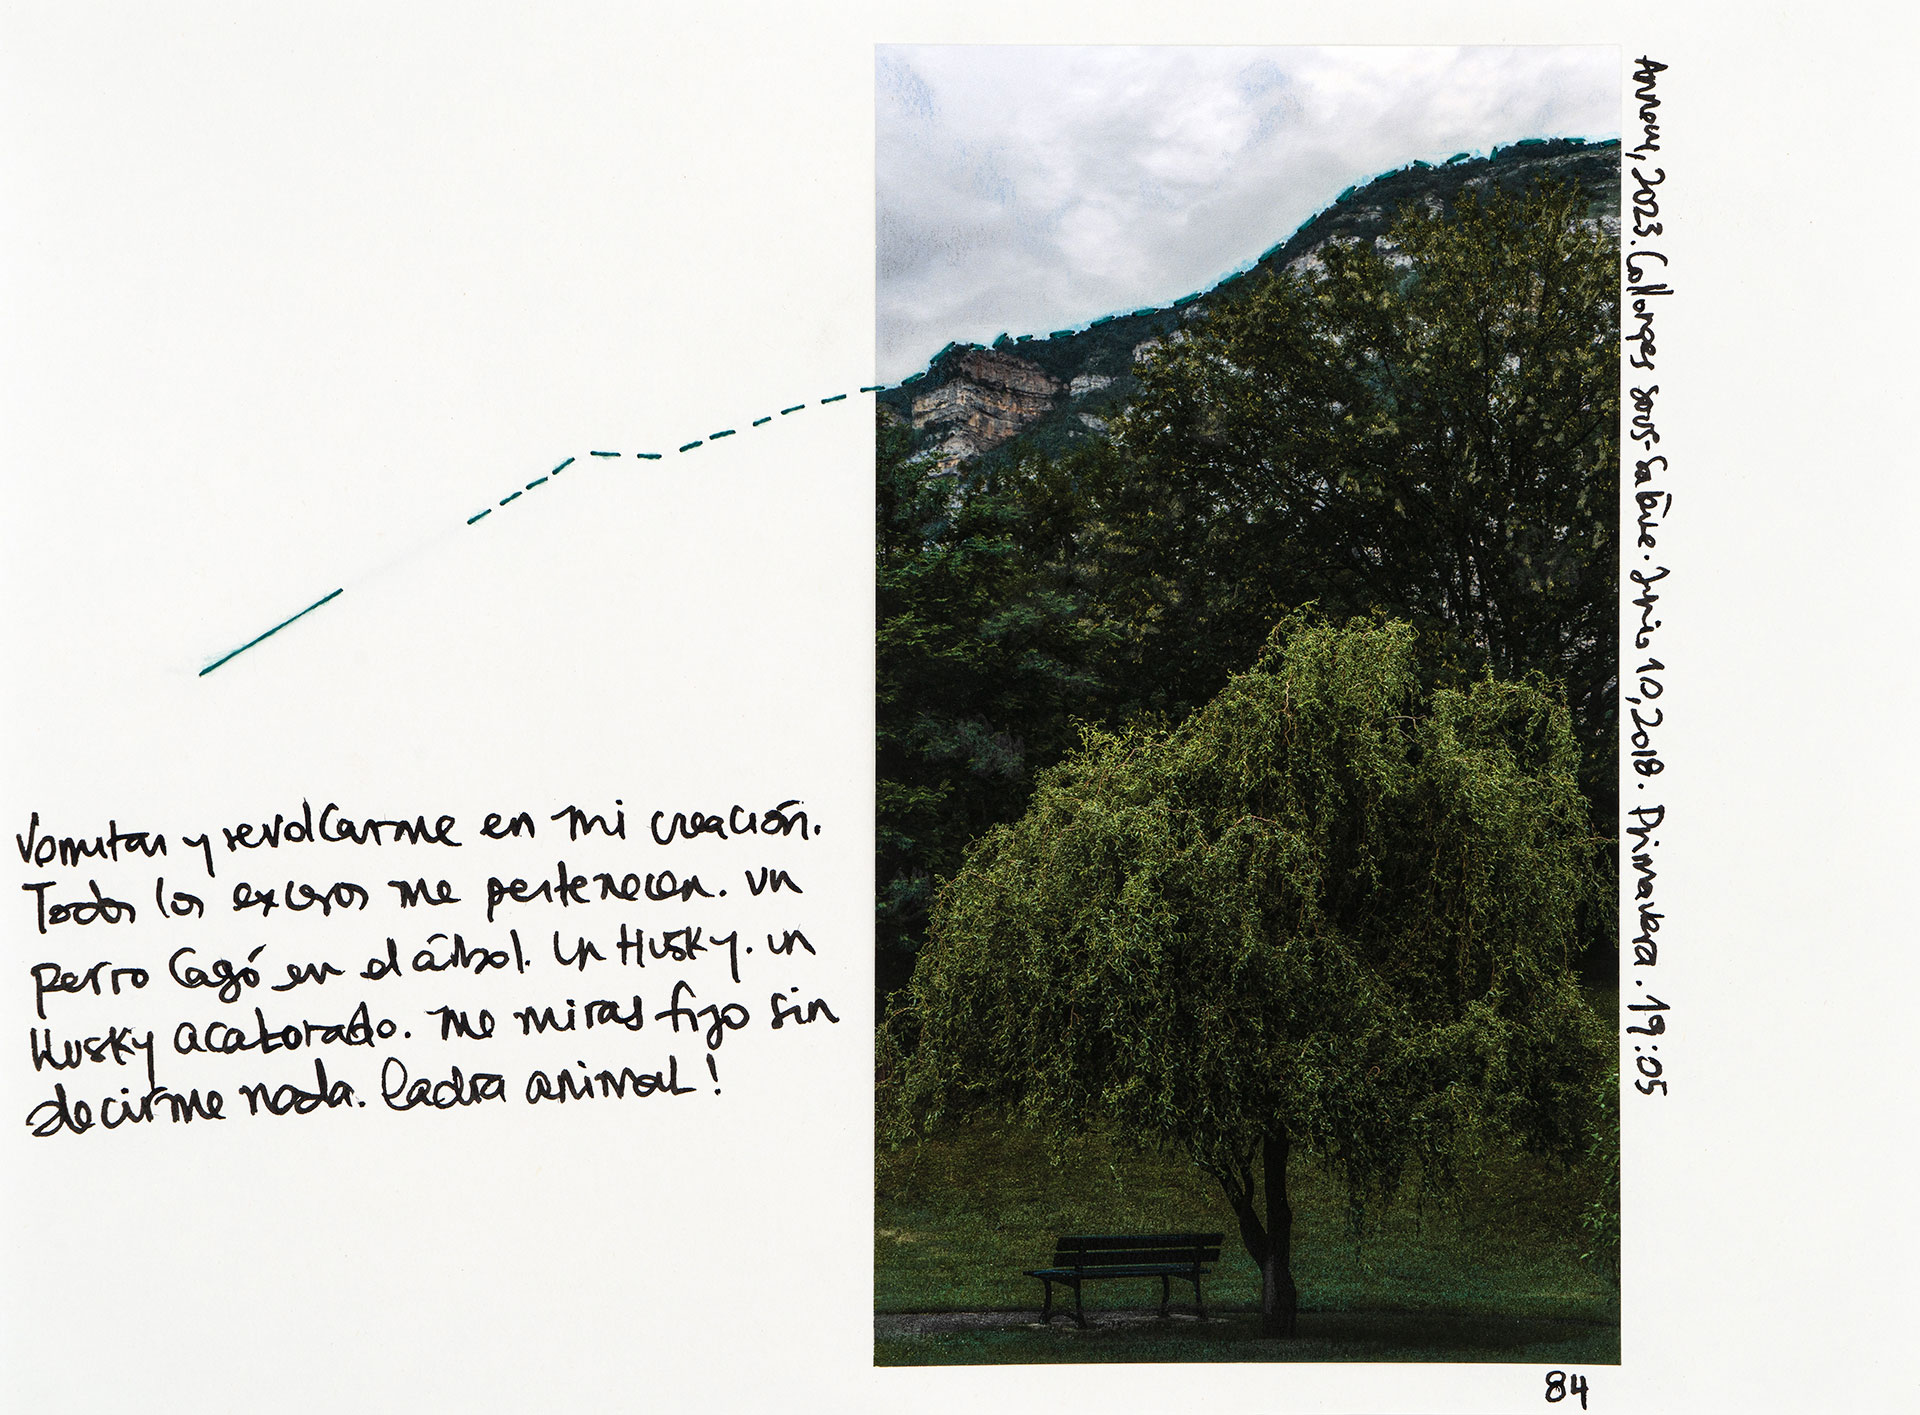 Vomitar y revolcarme en mi creación.
Todos los excesos me pertenecen. Un
perro cagó en el árbol. Un Husky. Un
Husky acalorado. Me miras fijo sin
decirme nada. Ladra animal!
2023. Collonges sous-Salève. Junio 10, 2018. Primavera. 19:05
84